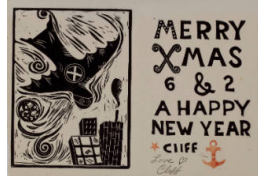 MERRY
XMAS
6 & 2
A HAPPY
NEW YEAR
CLIFF
Love
Cliff